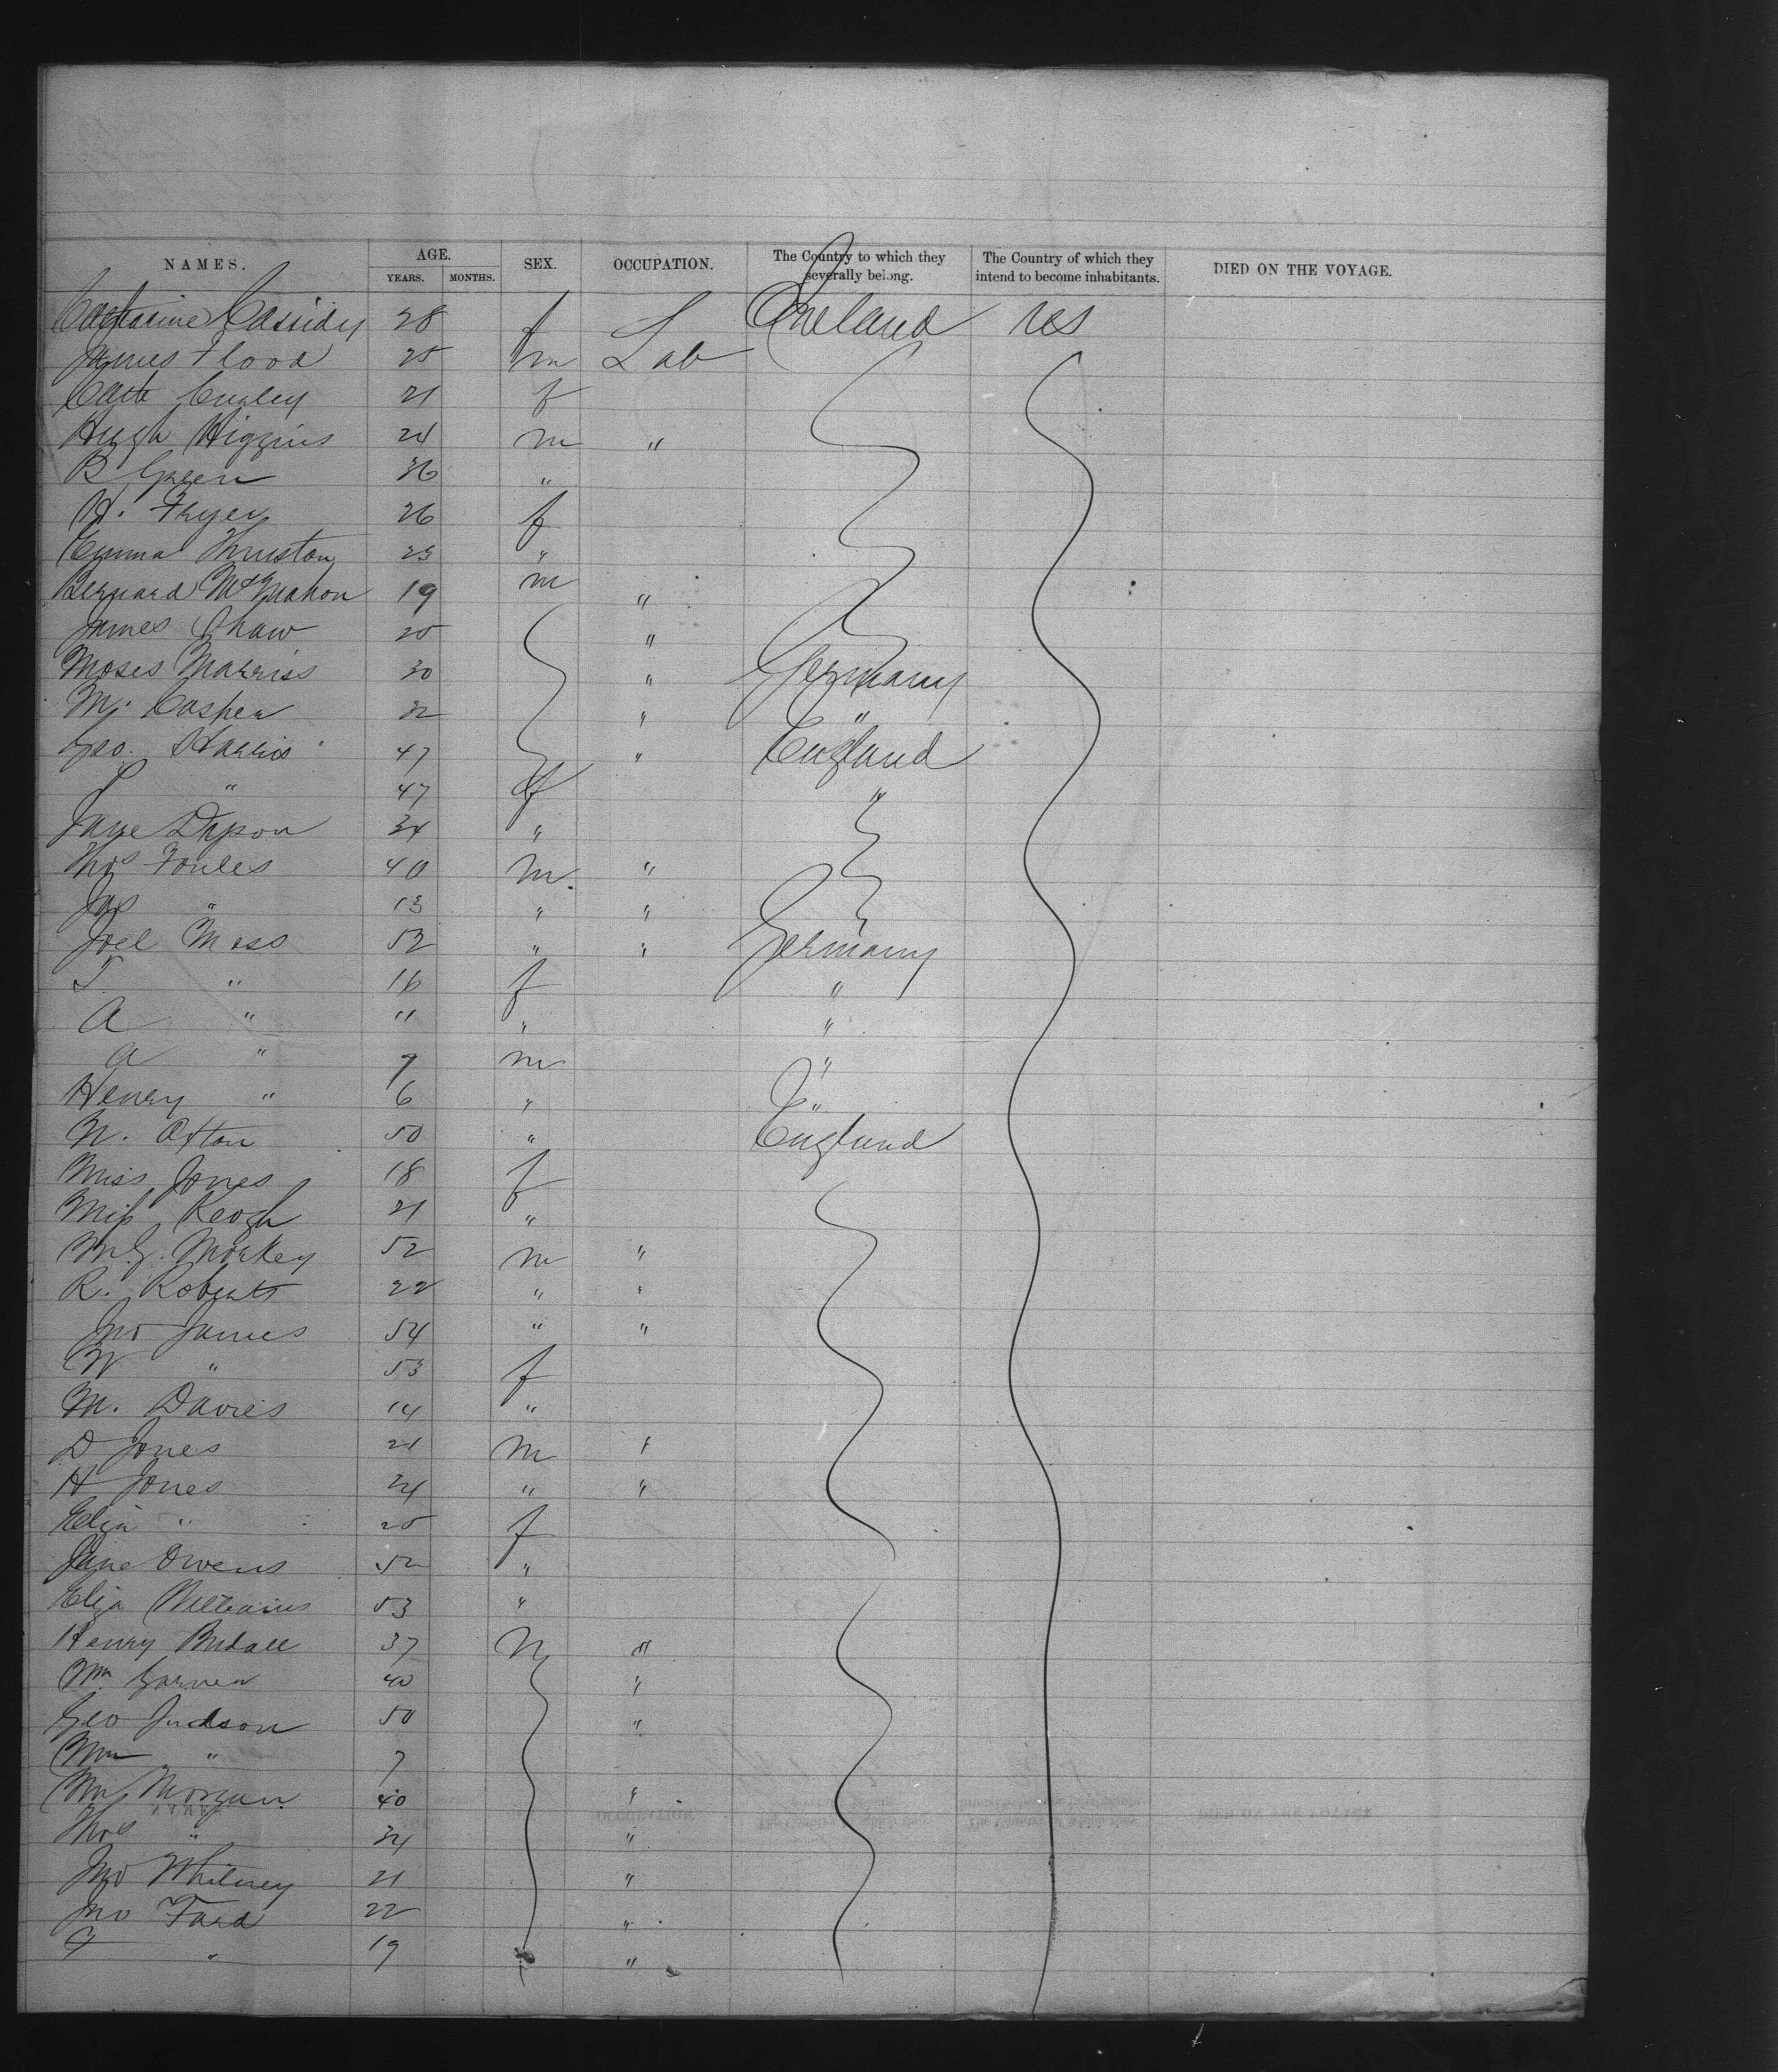 NAMES. AGE. YEARS. MONTHS. SEX. OCCUPATION. The Country to which they severally belong. The Country of which they intend to become inhabitants. DIED ON THE VOYAGE.
Catharine Cassidy 28 f Ireland US
James Flood 25 m Lab
Cath 21 f
Hugh Higgins 24 m "
B Green 36 "
H. Fryer 26 f
Emma Thruston 23 "
Bernard McMahon 19 m "
James Shaw 25 "
Moses Marriss 30 " Germany
M. Casper 32 " "
Geo. Harris 47 " England
" 47 f "
Jane 34 "
Thos Foules 40 m "
Jas " 13 " "
Joel Moss 52 " " Germany
" 16 f "
A " 11 " "
A " 9 m "
Henry " 6 " "
N. Oxton 50 " England
Miss Jones 18 f
Miss Keogh 21 "
Morkey 52 m "
R. Roberts 22 " "
Jno James 54 " "
W " 53 f
M. Davies 14 "
D Jones 21 m "
H Jones 24 " "
Eliza " 25 f
Jane Owens 52 "
Eliza Williams 53 "
Henry 37 M "
Wm Garner 40 "
Geo Judson 50 "
Wm " 7
Wm Morgan 40 "
Thos " 34 "
Jno Whitney 21 "
Jno Ford 22 "
" 19 "